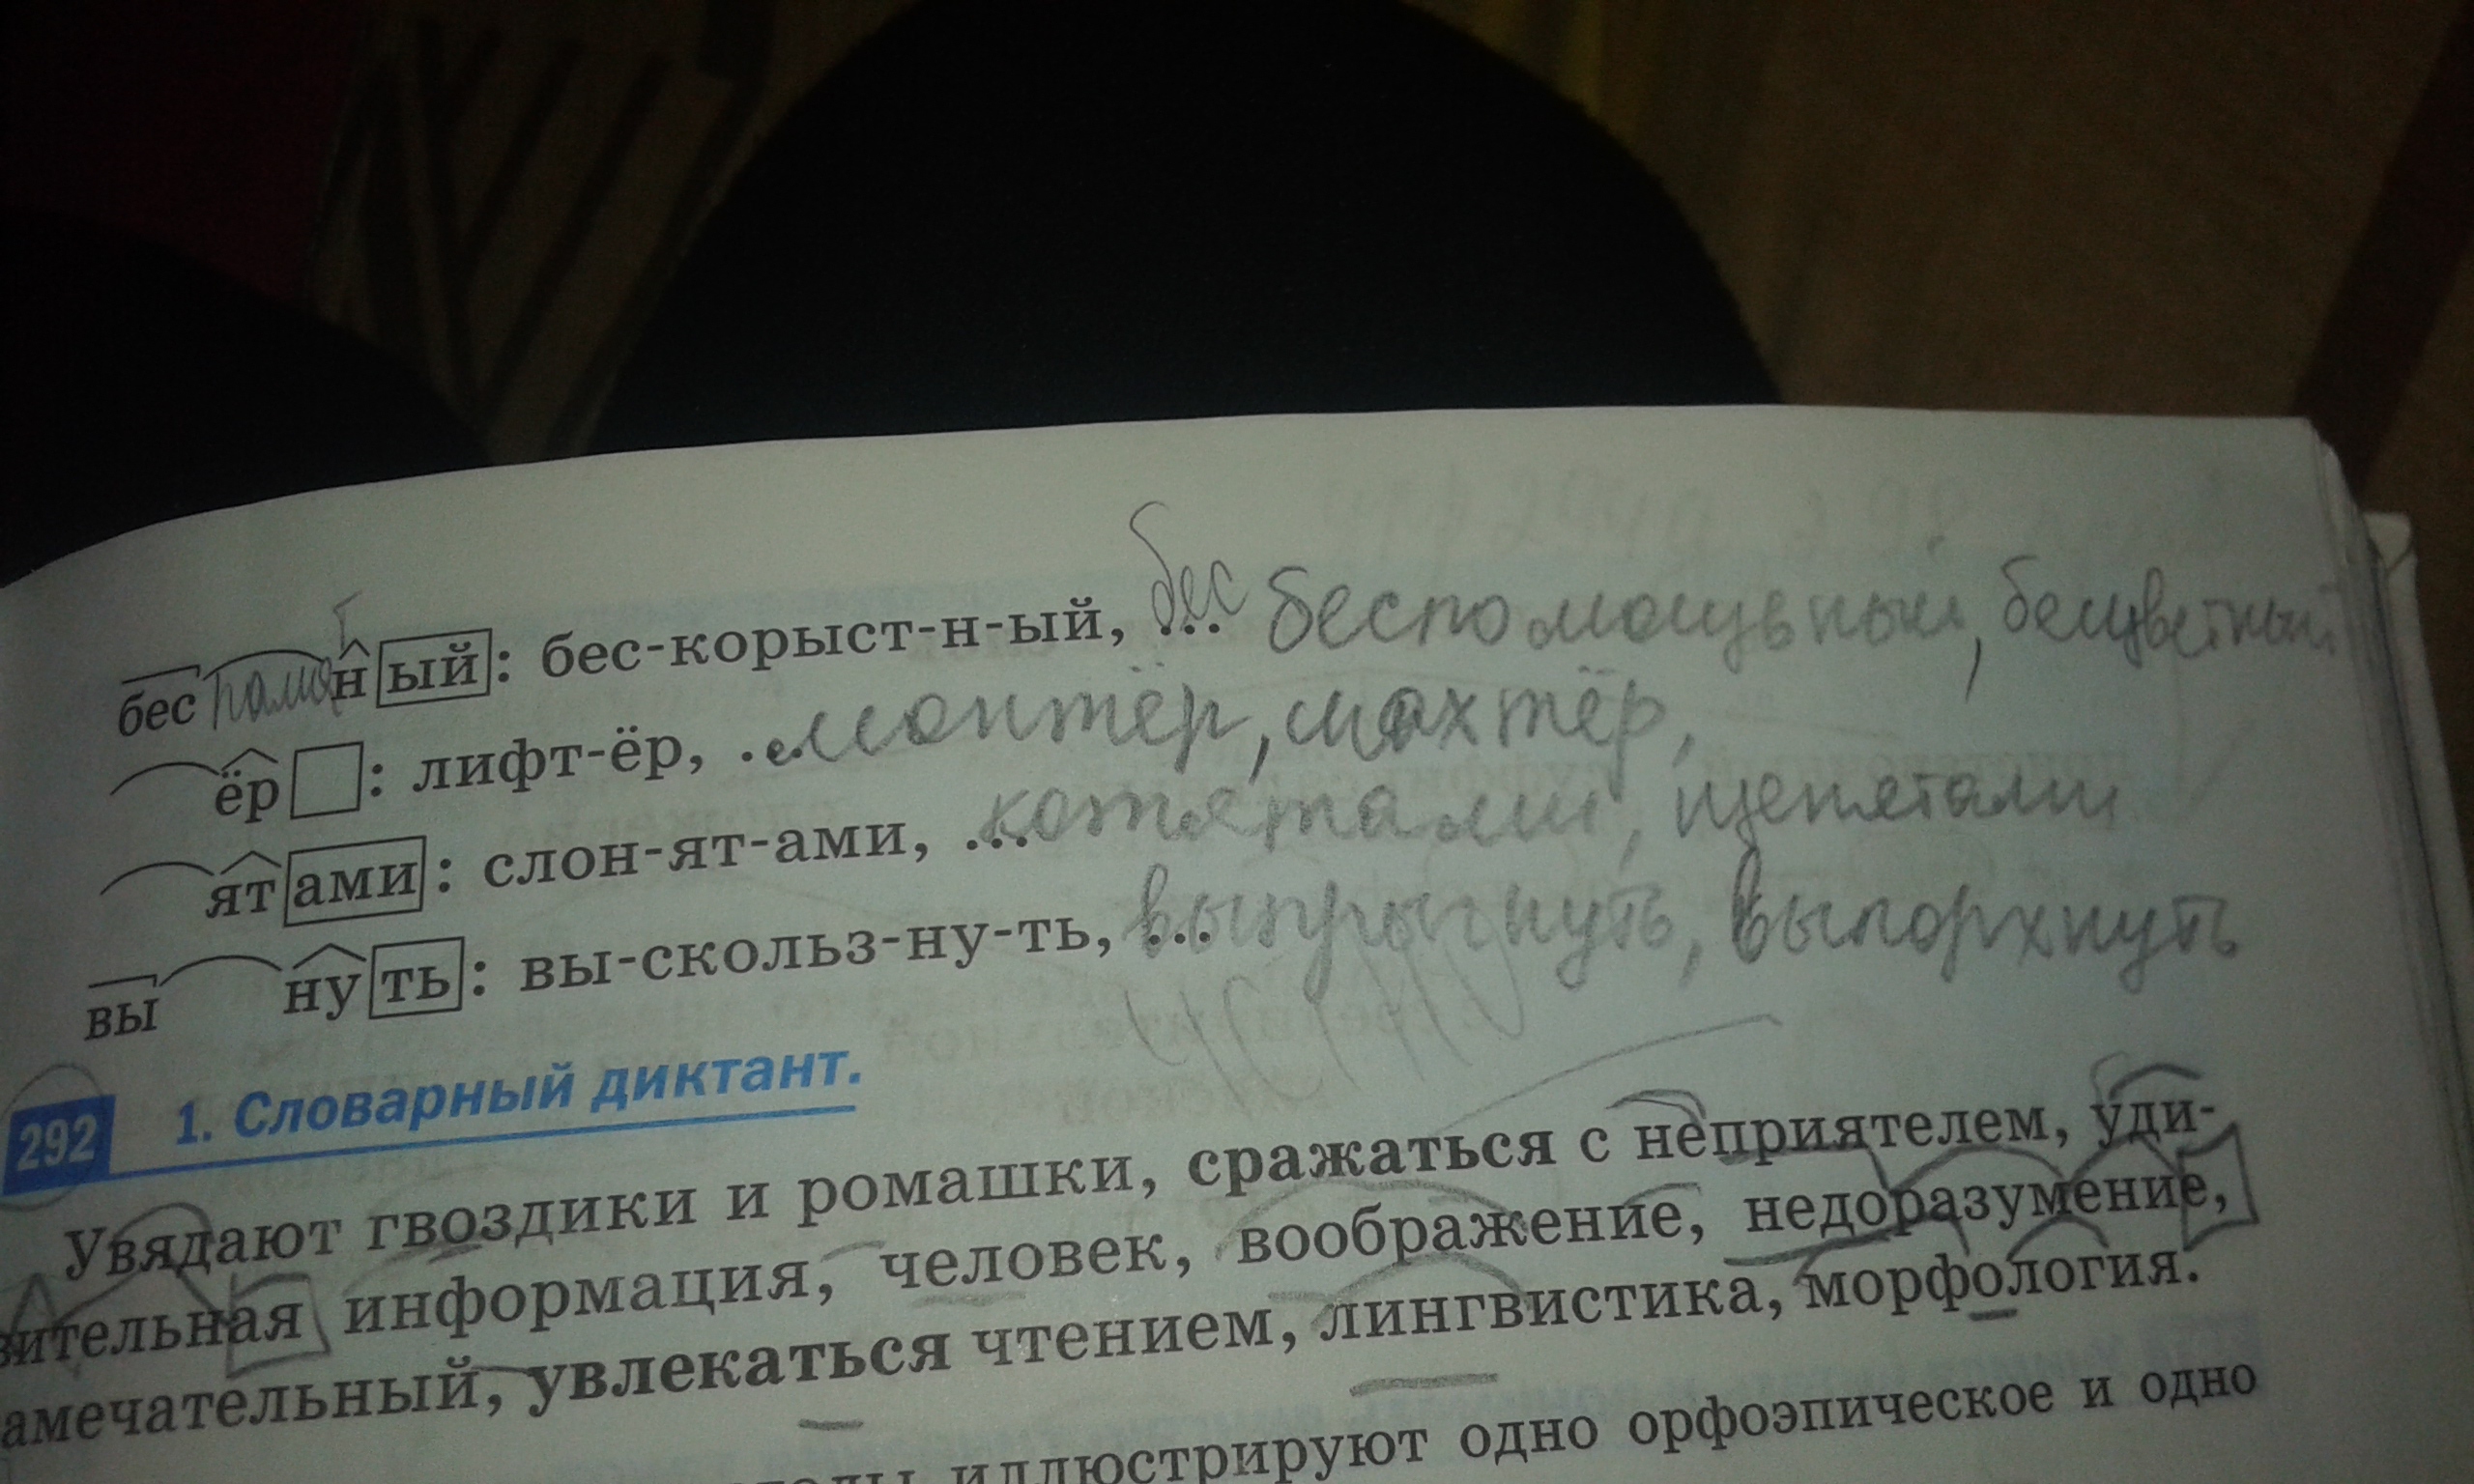 бес н ый : бес-корыст-н-ый, ... бес беспомощьный, бесцветный
ёр : лифт-ёр, ... монтёр, шахтёр,
ят ами : слон-ят-ами, ... котятами, щенятами
вы ну ть : вы-скольз-ну-ть, ... выпрыгнуть, выпорхнуть
292 1. Словарный диктант.
Увядают гвоздики и ромашки, сражаться с неприятелем, уди-
вительная информация, человек, воображение, недоразумение,
амечательный, увлекаться чтением, лингвистика, морфология.
иллюстрируют одно орфоэпическое и одно